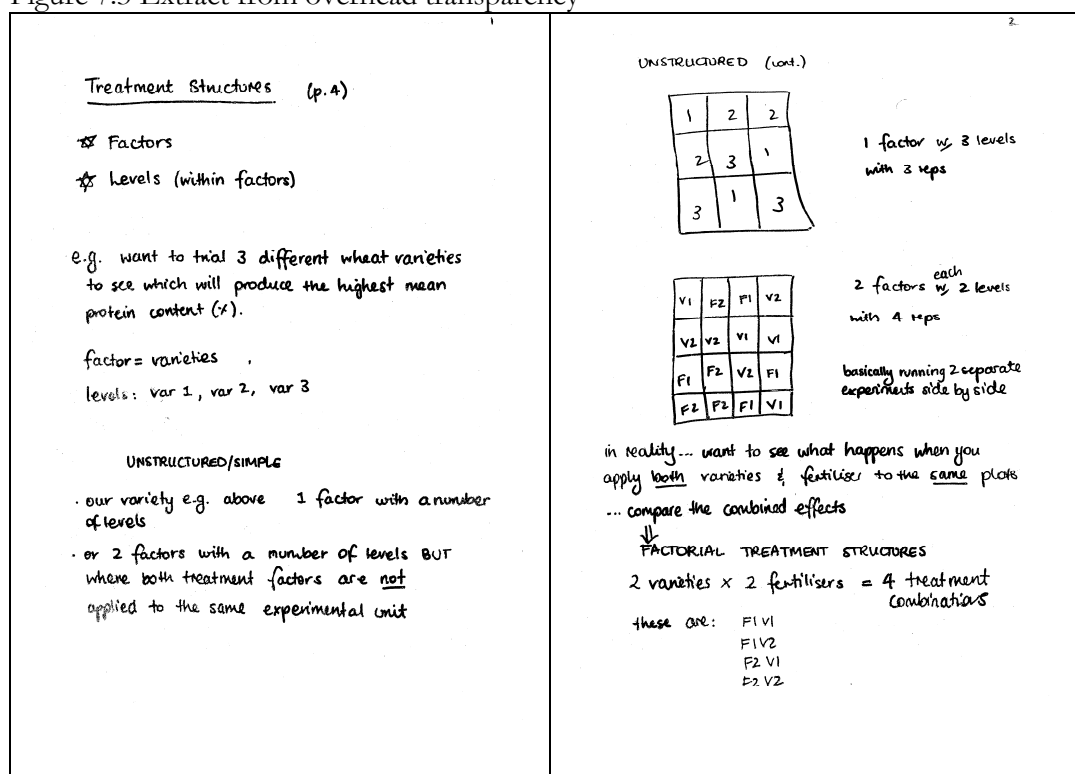 Figure 7.5 Extract from overhead transparency
1
Treatment Structures (p.4)
☆ Factors
☆ Levels (within factors)
e.g. want to trial 3 different wheat varieties
to see which will produce the highest mean
protein content (%).
factor = varieties
levels: var 1, var 2, var 3
UNSTRUCTURED/SIMPLE
· our variety e.g. above 1 factor with a number
of levels
· or 2 factors with a number of levels BUT
where both treatment factors are not
applied to the same experimental unit
2
UNSTRUCTURED (cont.)
1 2 2
2 3 1
3 1 3
1 factor w 3 levels
with 3 reps
V1 F2 F1 V2
V2 V2 V1 V1
F1 F2 V2 F1
F2 F2 F1 V1
2 factors each w 2 levels
with 4 reps
basically running 2 separate
experiments side by side
in reality... want to see what happens when you
apply both varieties & fertiliser to the same plots
... compare the combined effects
⇓
FACTORIAL TREATMENT STRUCTURES
2 varieties x 2 fertilisers = 4 treatment
combinations
these are: F1V1
F1V2
F2 V1
F2 V2